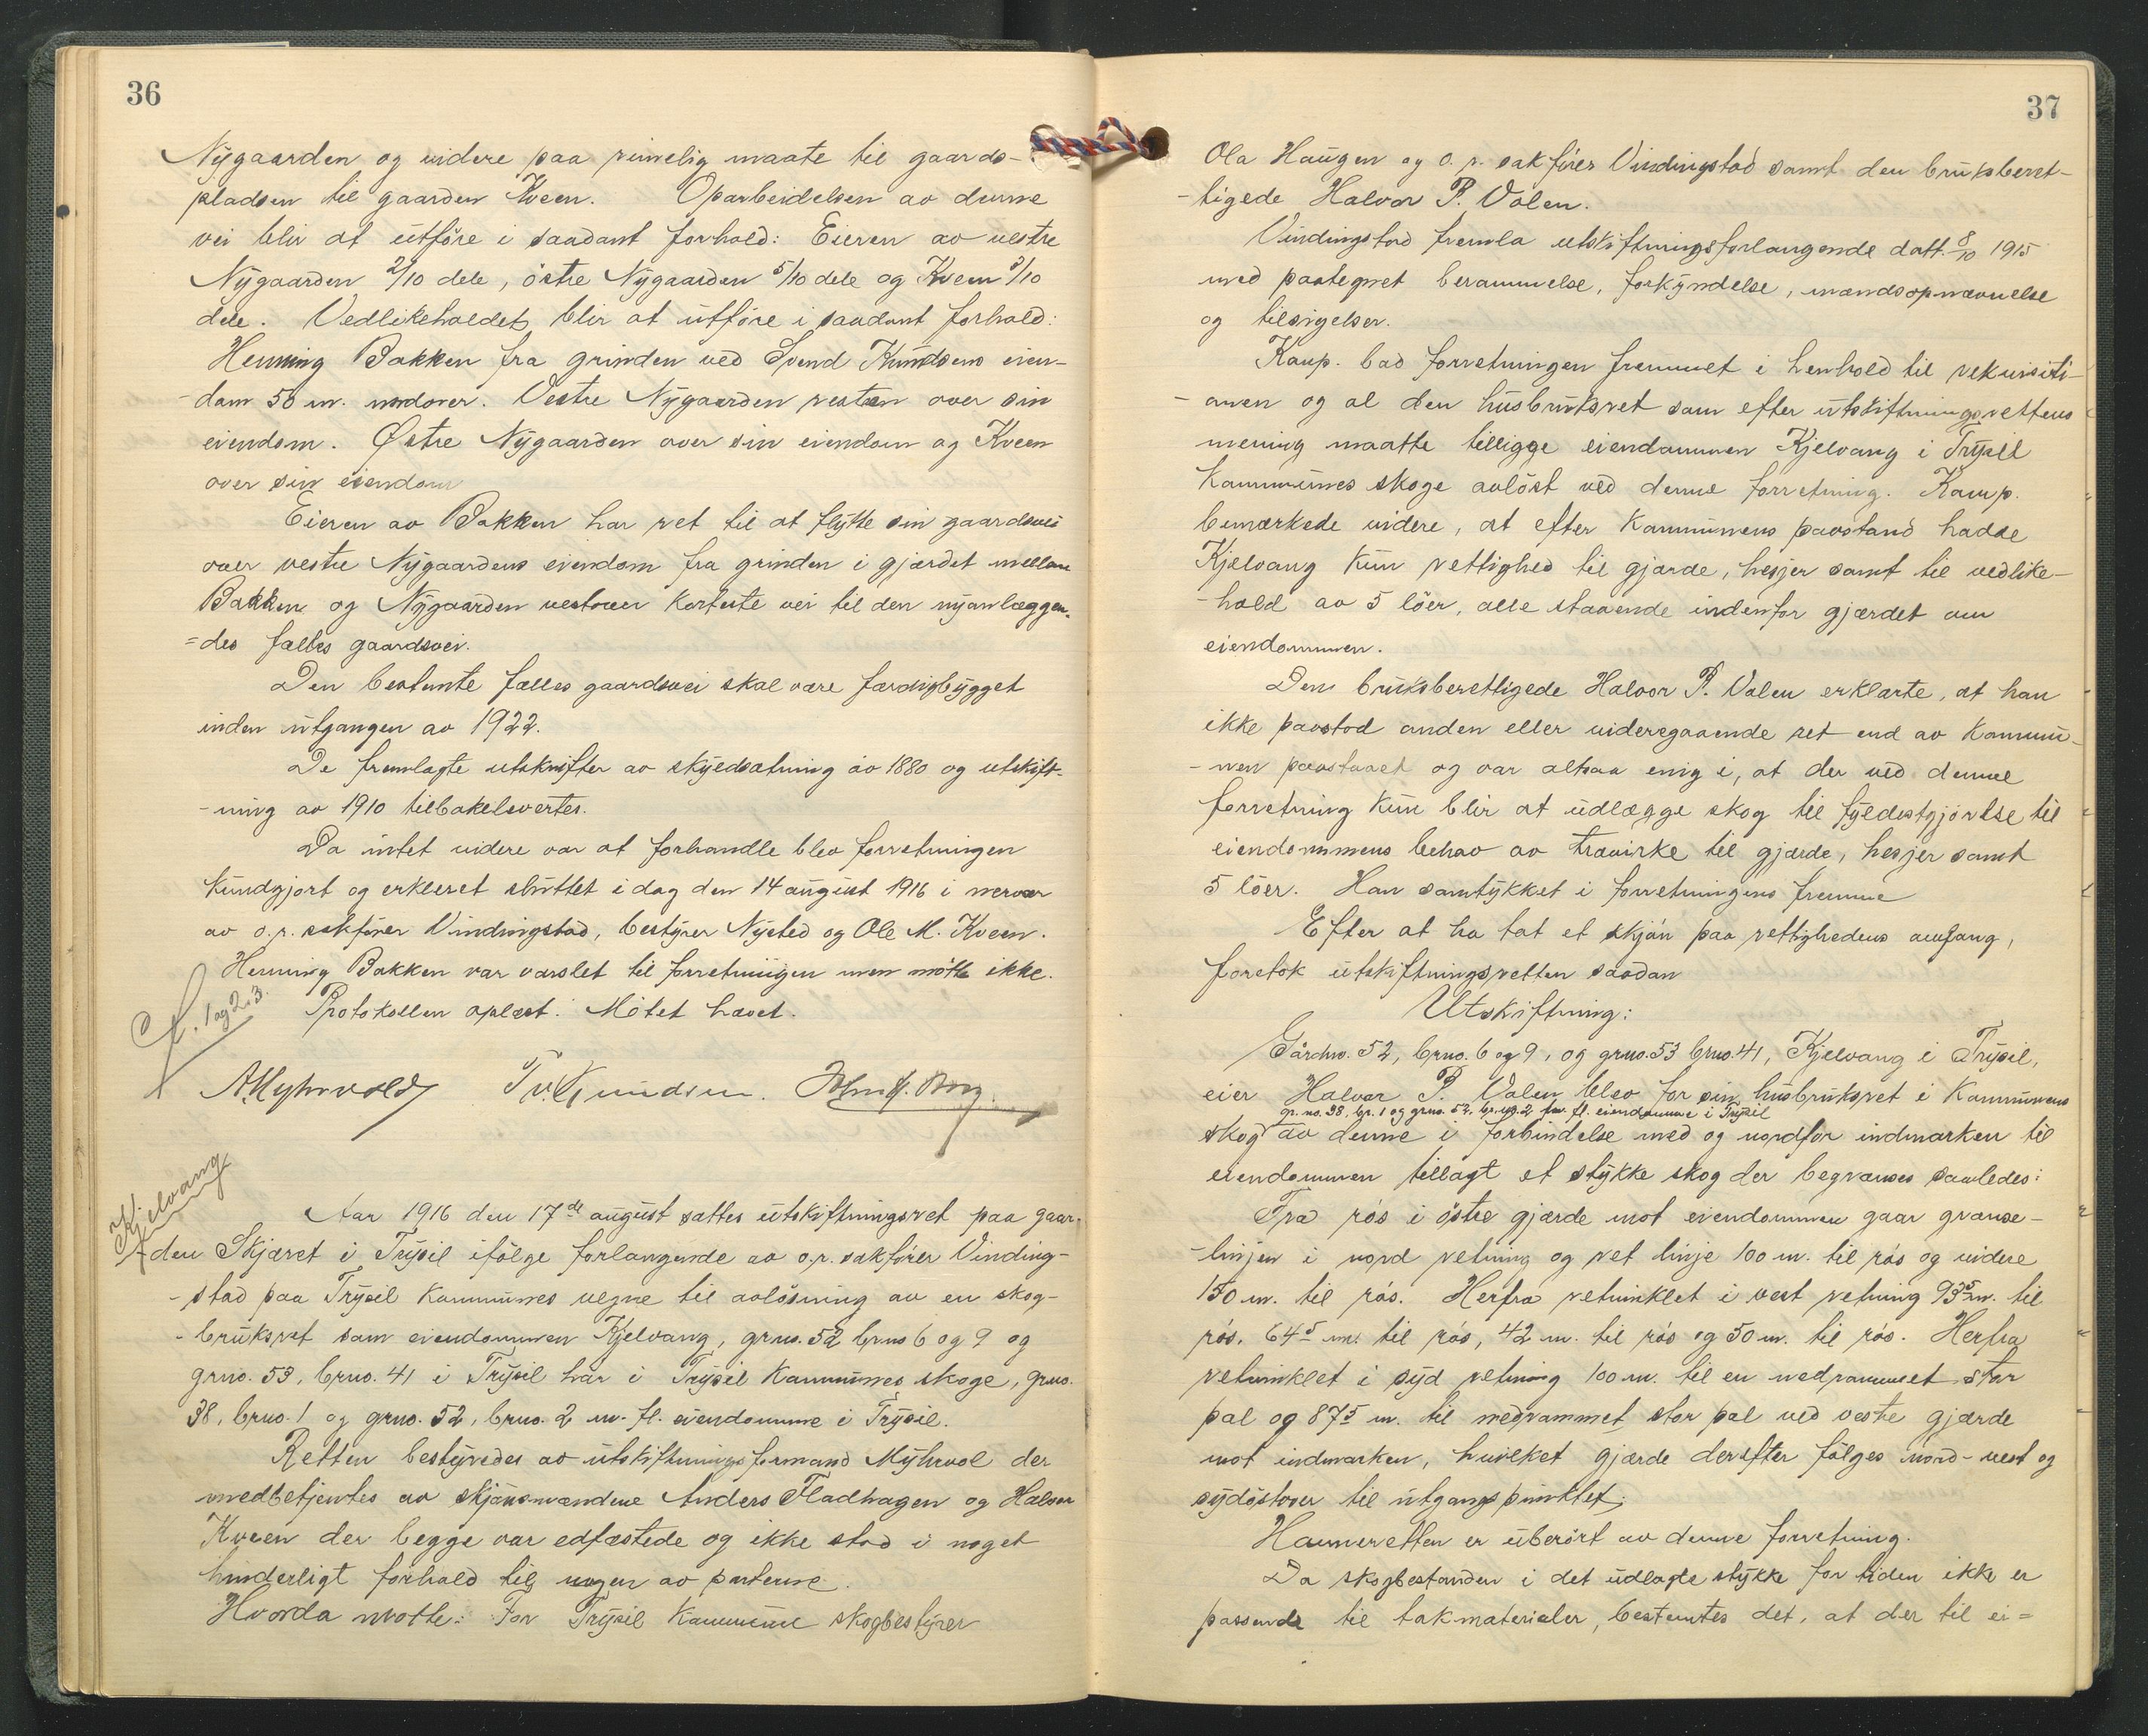 36
Nygaarden og videre paa rimelig maate til gaards-
pladsen til gaarden Kveen. Oparbeidelsen av denne
vei blir at utføre i saadant forhold: Eieren av vestre
Nygaarden 2/10 dele, östre Nygaarden 5/10 dele og Kveen 3/10
dele. Vedlikeholdet blir at utføre i saadant forhold:
Henning Bakken fra grinden ved Svend Knudsens eien-
-dom 50 m. nordover. Vestre Nygaarden resten over sin
eiendom. Østre Nygaarden over sin eiendom og Kveen
over sin eiendom
Eieren av Bakken har ret til at flytte sin gaardsvei
over vestre Nygaardens eiendom fra grinden i gjærdet mellem
Bakken og Nygaarden vestover korteste vei til den nyanlæggen-
=des fælles gaardsvei.
Den bestemte fælles gaardsvei skal være færdigbygget
inden utgangen av 1922.
De fremlagte utskrifter av skyldsætning av 1880 og utskift-
-ning av 1910 tilbakelevertes.
Da intet videre var at forhandle blev forretningen
kundgjort og erkleret sluttet i dag den 14 august 1916 i nervær
av o.r. sakfører Vindingstad, bestyrer Nysted og Ole M. Kveen.
Henning Bakken var varslet til forretningen men møtte ikke.
Protokollen oplæst. Møtet hævet.
1 og 2, 3.
A. Myhrvold
Kjelvang
Aar 1916 den 17de august sattes utskiftningsret paa gaar-
den Skjæret i Trysil ifølge forlangende av o.r. sakfører Vinding-
-stad paa Trysil kommunes vegne til avløsning av en skog-
-bruksret som eiendommen Kjelvang, grno. 52 brno 6 og 9 og
grno. 53, brno. 41 i Trysil har i Trysil kommunes skoge, grno.
38, brno. 1 og grno. 52, brno. 2 m. fl. eiendomme i Trysil.
Retten bestyredes av utskiftningsformand Myhrvol der
medbetjentes av skjønsmændene Anders Fladhagen og Halvor
Kveen der begge var edfæstede og ikke stod i noget
hinderligt forhold til nogen av parterne.
Hvorda møtte: For Trysil kommune skogbestyrer
37
Ola Haugen og o.r. sakfører Vindingstad samt den bruksberet-
-tigede Halvor P. Volen.
Vindingstad fremla utskiftningsforlangende datt. 8/10 1915
med paategnet berammelse, forkyndelse, mændsopnævnelse
og tilsigelser.
Komp. bad forretningen fremmet i henhold til rekvisiti-
-onen og al den husbruksret som efter utskiftningsrettens
mening maatte tilligge eiendommen Kjelvang i Trysil
Kommunes skoge avløst ved denne forretning. Komp.
bemærkede videre, at efter kommunens paastand hadde
Kjelvang kun rettighed til gjærde, hesjer samt til vedlike-
-hold av 5 løer, alle staaende indenfor gjærdet om
eiendommen.
Den bruksberettigede Halvor P. Volen erklærte, at han
ikke paastod anden eller videregaaende ret end av kommu-
-nen paastaaet og var altsaa enig i, at der ved denne
forretning kun blir at udlægge skog til fyldestgjørelse til
eiendommens behov av trævirke til gjærde, hesjer samt
5 løer. Han samtykket i forretningens fremme
Efter at ha tat et skjøn paa rettighedens omfang,
foretok utskiftningsretten saadan
Utskiftning:
Gårdno. 52, brno. 6 og 9, og grno. 53 brno. 41, Kjelvang i Trysil,
eier Halvor P. Volen blev for sin husbruksret i Kommunens
gr. no. 38, br. 1 og grno. 52, br. no. 2 m. fl. eiendomme i Trysil
skog av denne i forbindelse med og nordfor indmarken til
eiendommen tillagt et stykke skog der begrænses saaledes:
Fra røs i østre gjærde mot eiendommen gaar grænse-
-linjen i nord retning og ret linje 100 m. til røs og videre
150 m. til røs. Herfra retvinklet i vest retning 93 m. til
røs, 64 5 m. til røs, 42 m. til røs og 50 m. til røs. Herfra
retvinklet i syd retning 100 m. til en nedrammet stor
pæl og 87 5 m. til nedrammet stor pæl ved vestre gjærde
mot indmarken, hvilket gjærde derefter følges nord-vest og
sydøstover til utgangspunktet;
Havneretten er uberørt av denne forretning.
Da skogbestanden i det udlagte stykke for tiden ikke er
passende til takmaterialer, bestemtes det, at der til ei=